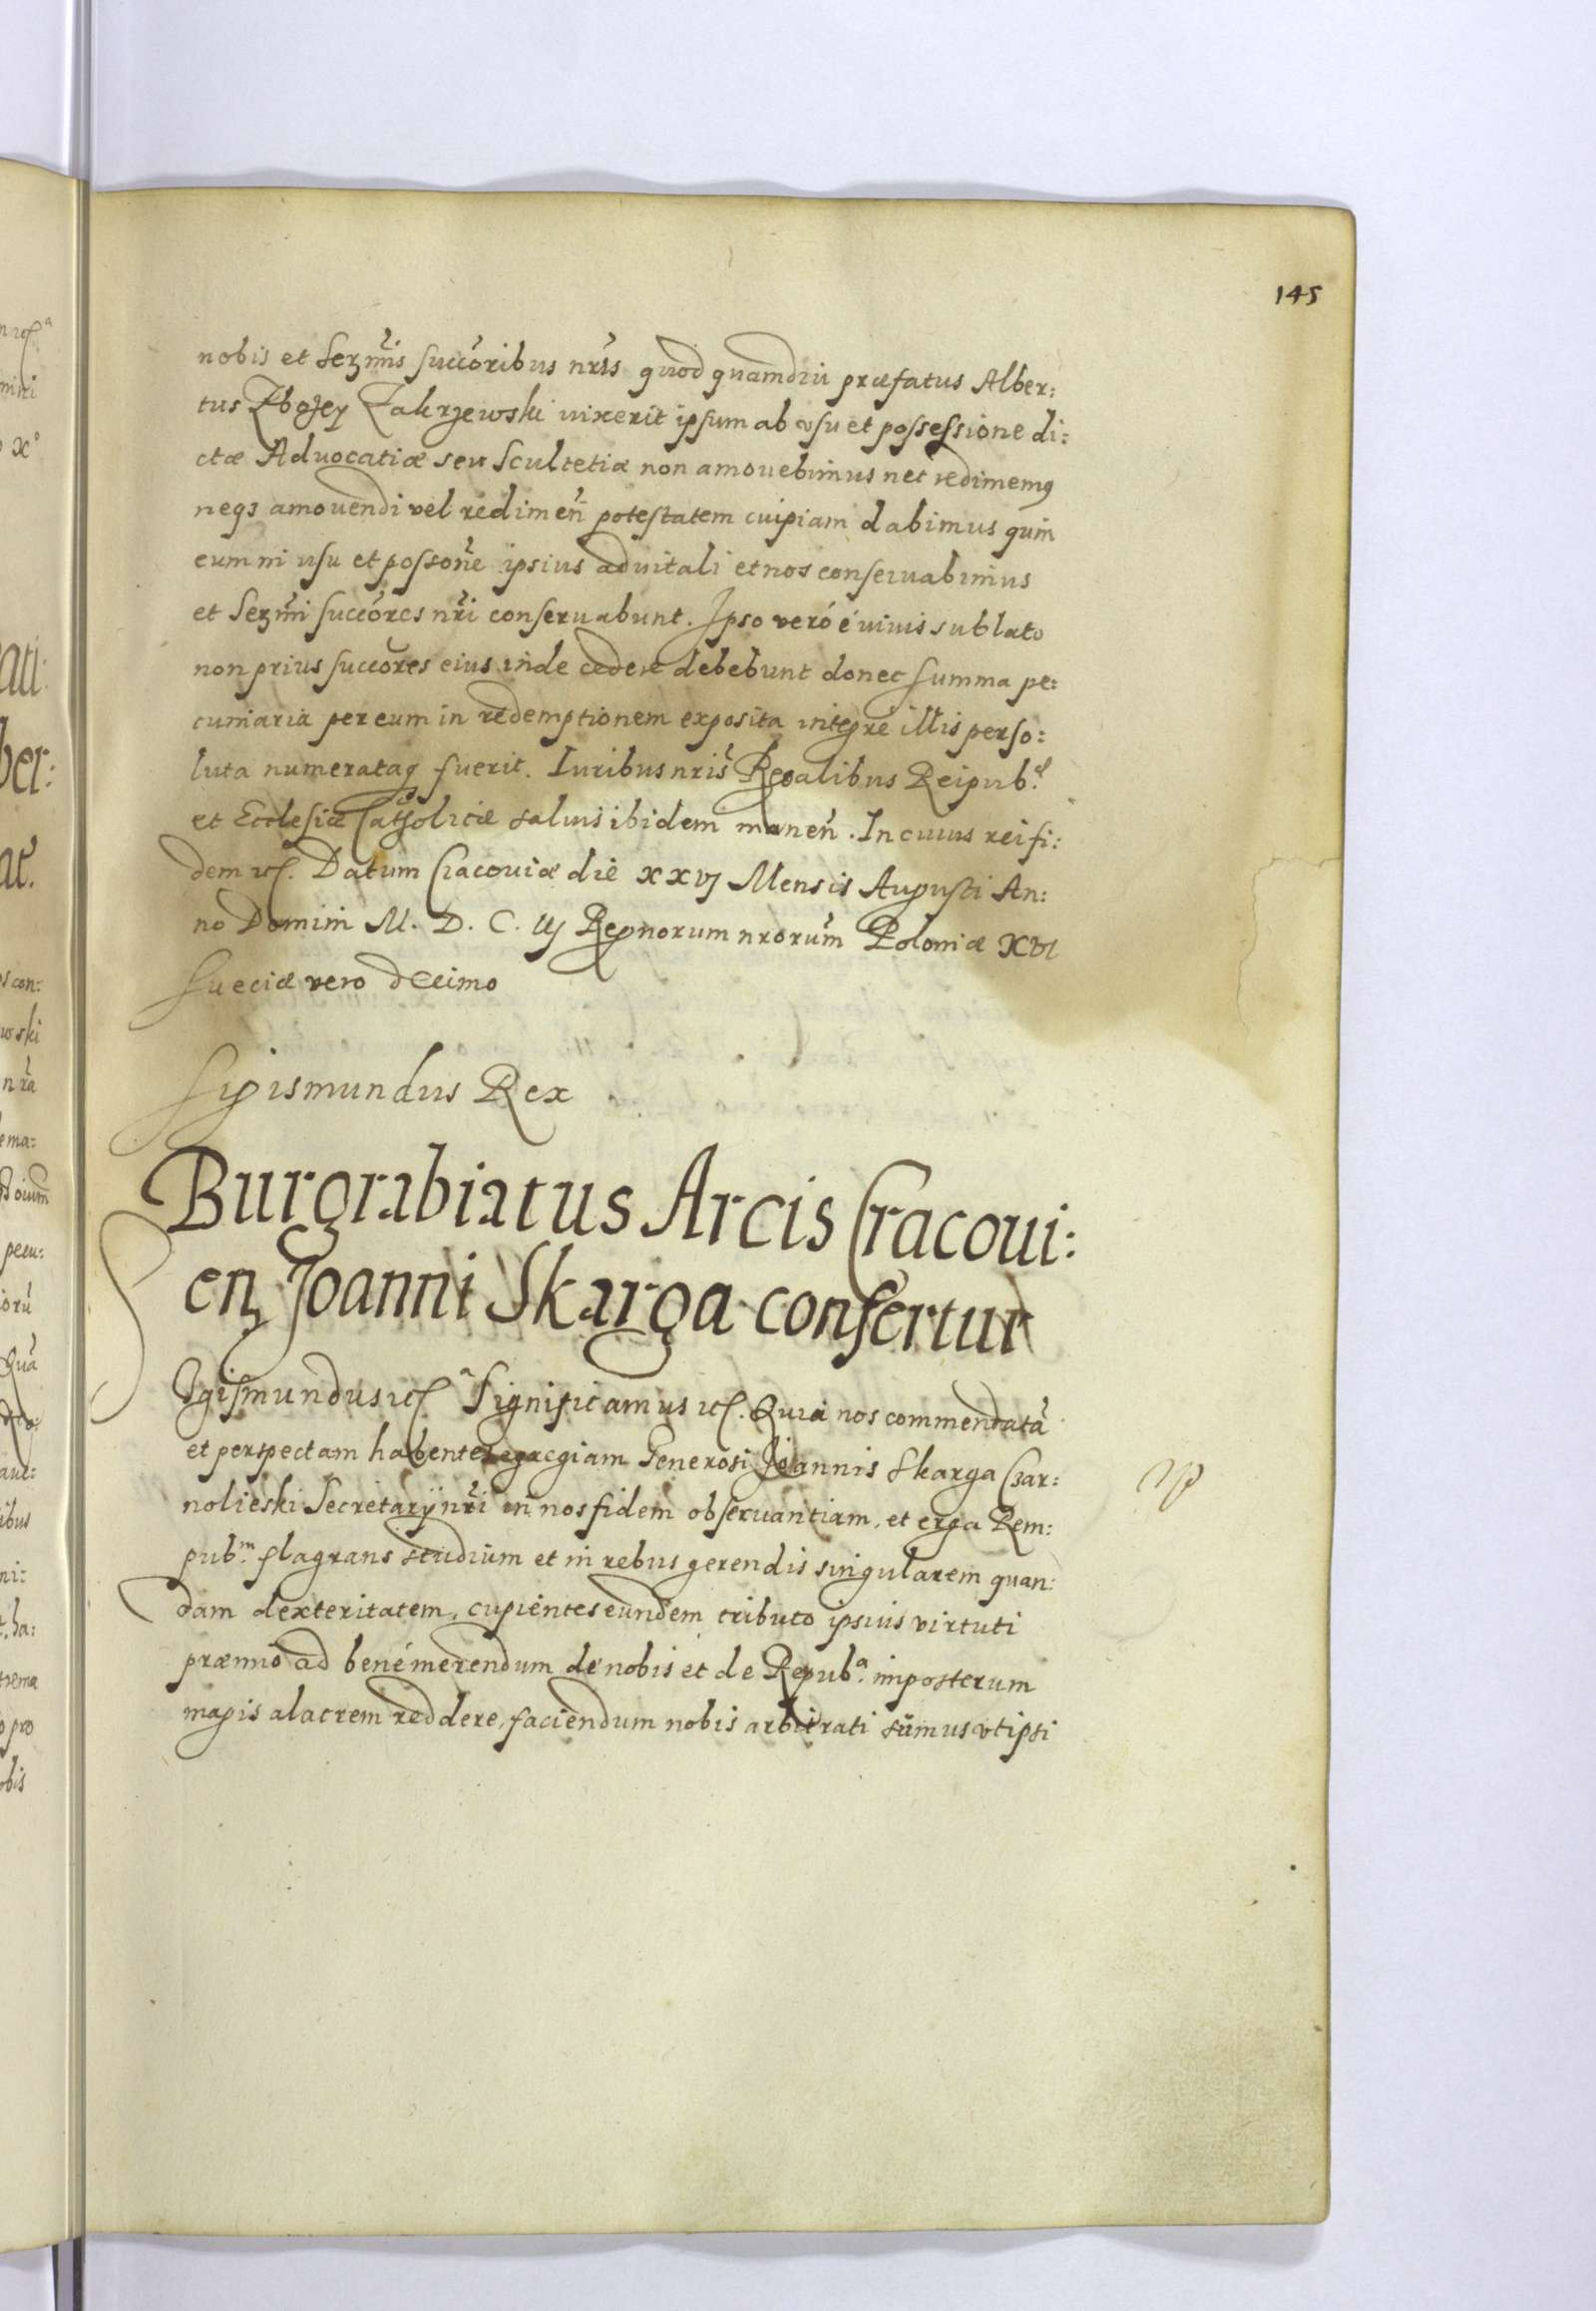 145
nobis et Serm̃is succ̃oribus nr̃is quod quamdiu præfatus Alber:
tus Zbozey Zakrzewski vixerit ipsum ab vsu et possessione di:
ctæ Aduocatiæ seu Scultetiæ non amouebimus nec redimemꝰ
neqꝫ amouendi vel redimeñ potestatem cuipiam dabimus quin
eum in usu et possoñe ipsius aduitali et nos conseruabimus
et Serm̃i succ̃ores nr̃i conseruabunt. Ipso veró é viuis sublato
non prius succ̃ores eius inde cedere debebunt donec summa pe:
cuniaria per eum in redemptionem exposita integre illis perso:
luta numerataqꝫ fuerit. Iuribus nr̃is Regalibus Reipub.
et Ecclesiæ Catholicæ saluis ibidem maneñ. In cuius rei fi:
dem etc. Datum Cracouiæ die XXVJ Mensis Augusti An:
no Domini M. D. C. IIJ Regnorum nrorum̃ Poloniæ XVI
Sueciæ vero decimo
Sigismundus Rex
Burgrabiatus Arcis Cracoui:
eñ Joanni Skarga confertur
Sigismundus etc.ª Significamus etc. Quia nos commendatã
et perspectam habentes egregiam Generosi Joannis Skarga Czar:
nolieski Secretarij nr̃i in nos fidem obseruantiam, et erga Rem:
pub.ᵐ flagrans studium et in rebus gerendis singularem quan:
dam dexteritatem, cupientes eundem tributo ipsius virtuti
præmio ad bené merendum de nobis et de Repub.ª imposterum
magis alacrem reddere, faciendum nobis arbitrati sumus vt ipsi